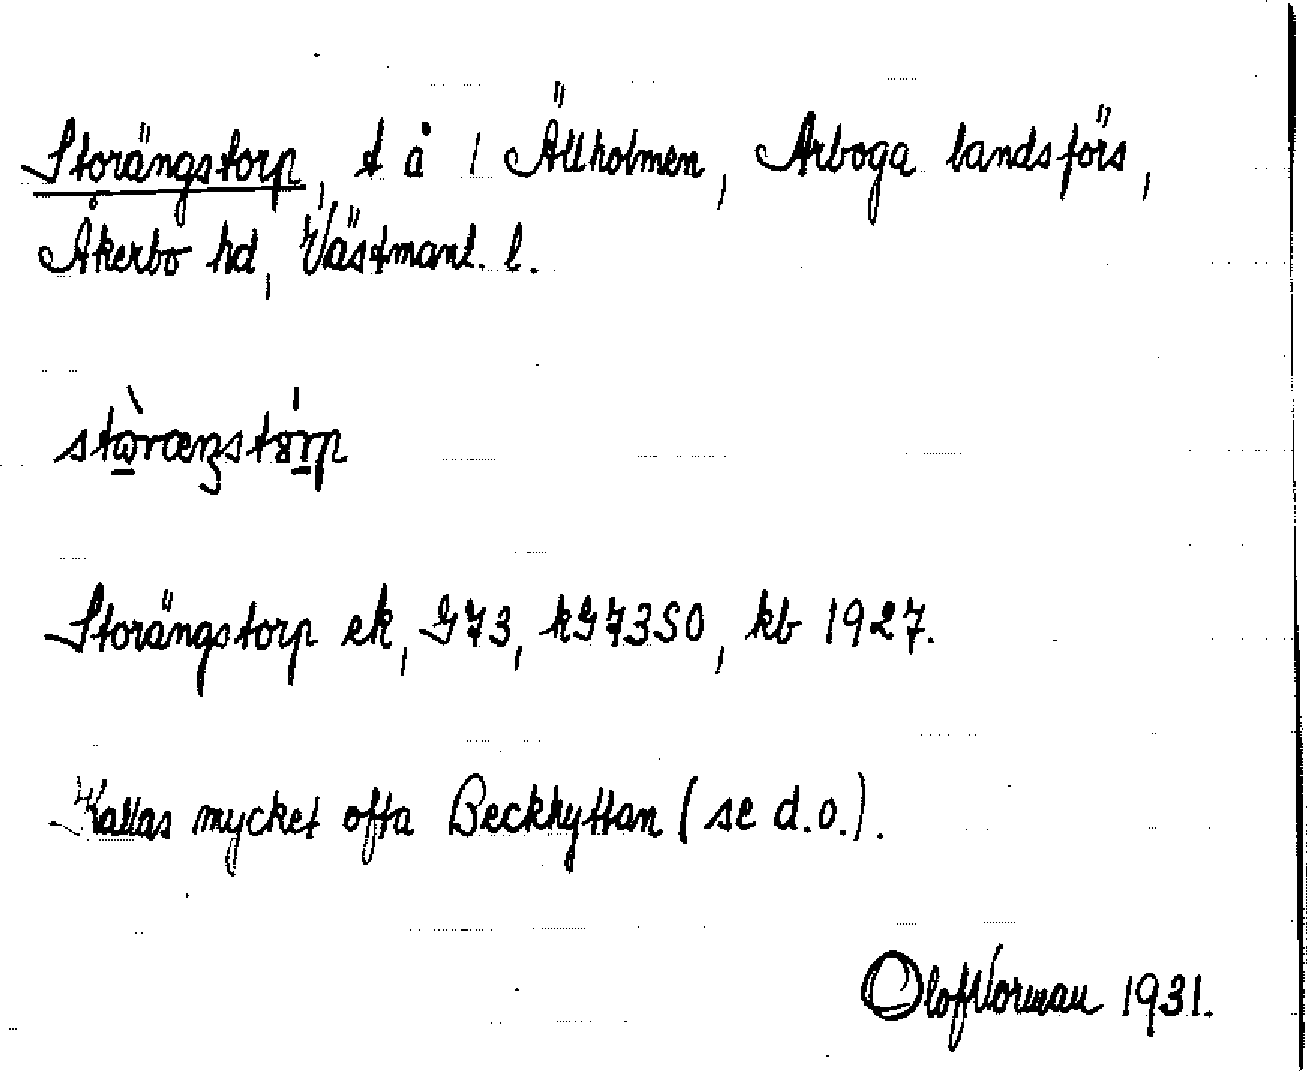 Storängstorp, t å 1 Ällholmen, Arboga landsförs,
Åkerbo hd, Västmanl. l.
Storängstorp ek, G73, kG73SO, kb 1927.
Kallas mycket ofta Beckhyttan (se d.o.).
Olof Norman 1931.